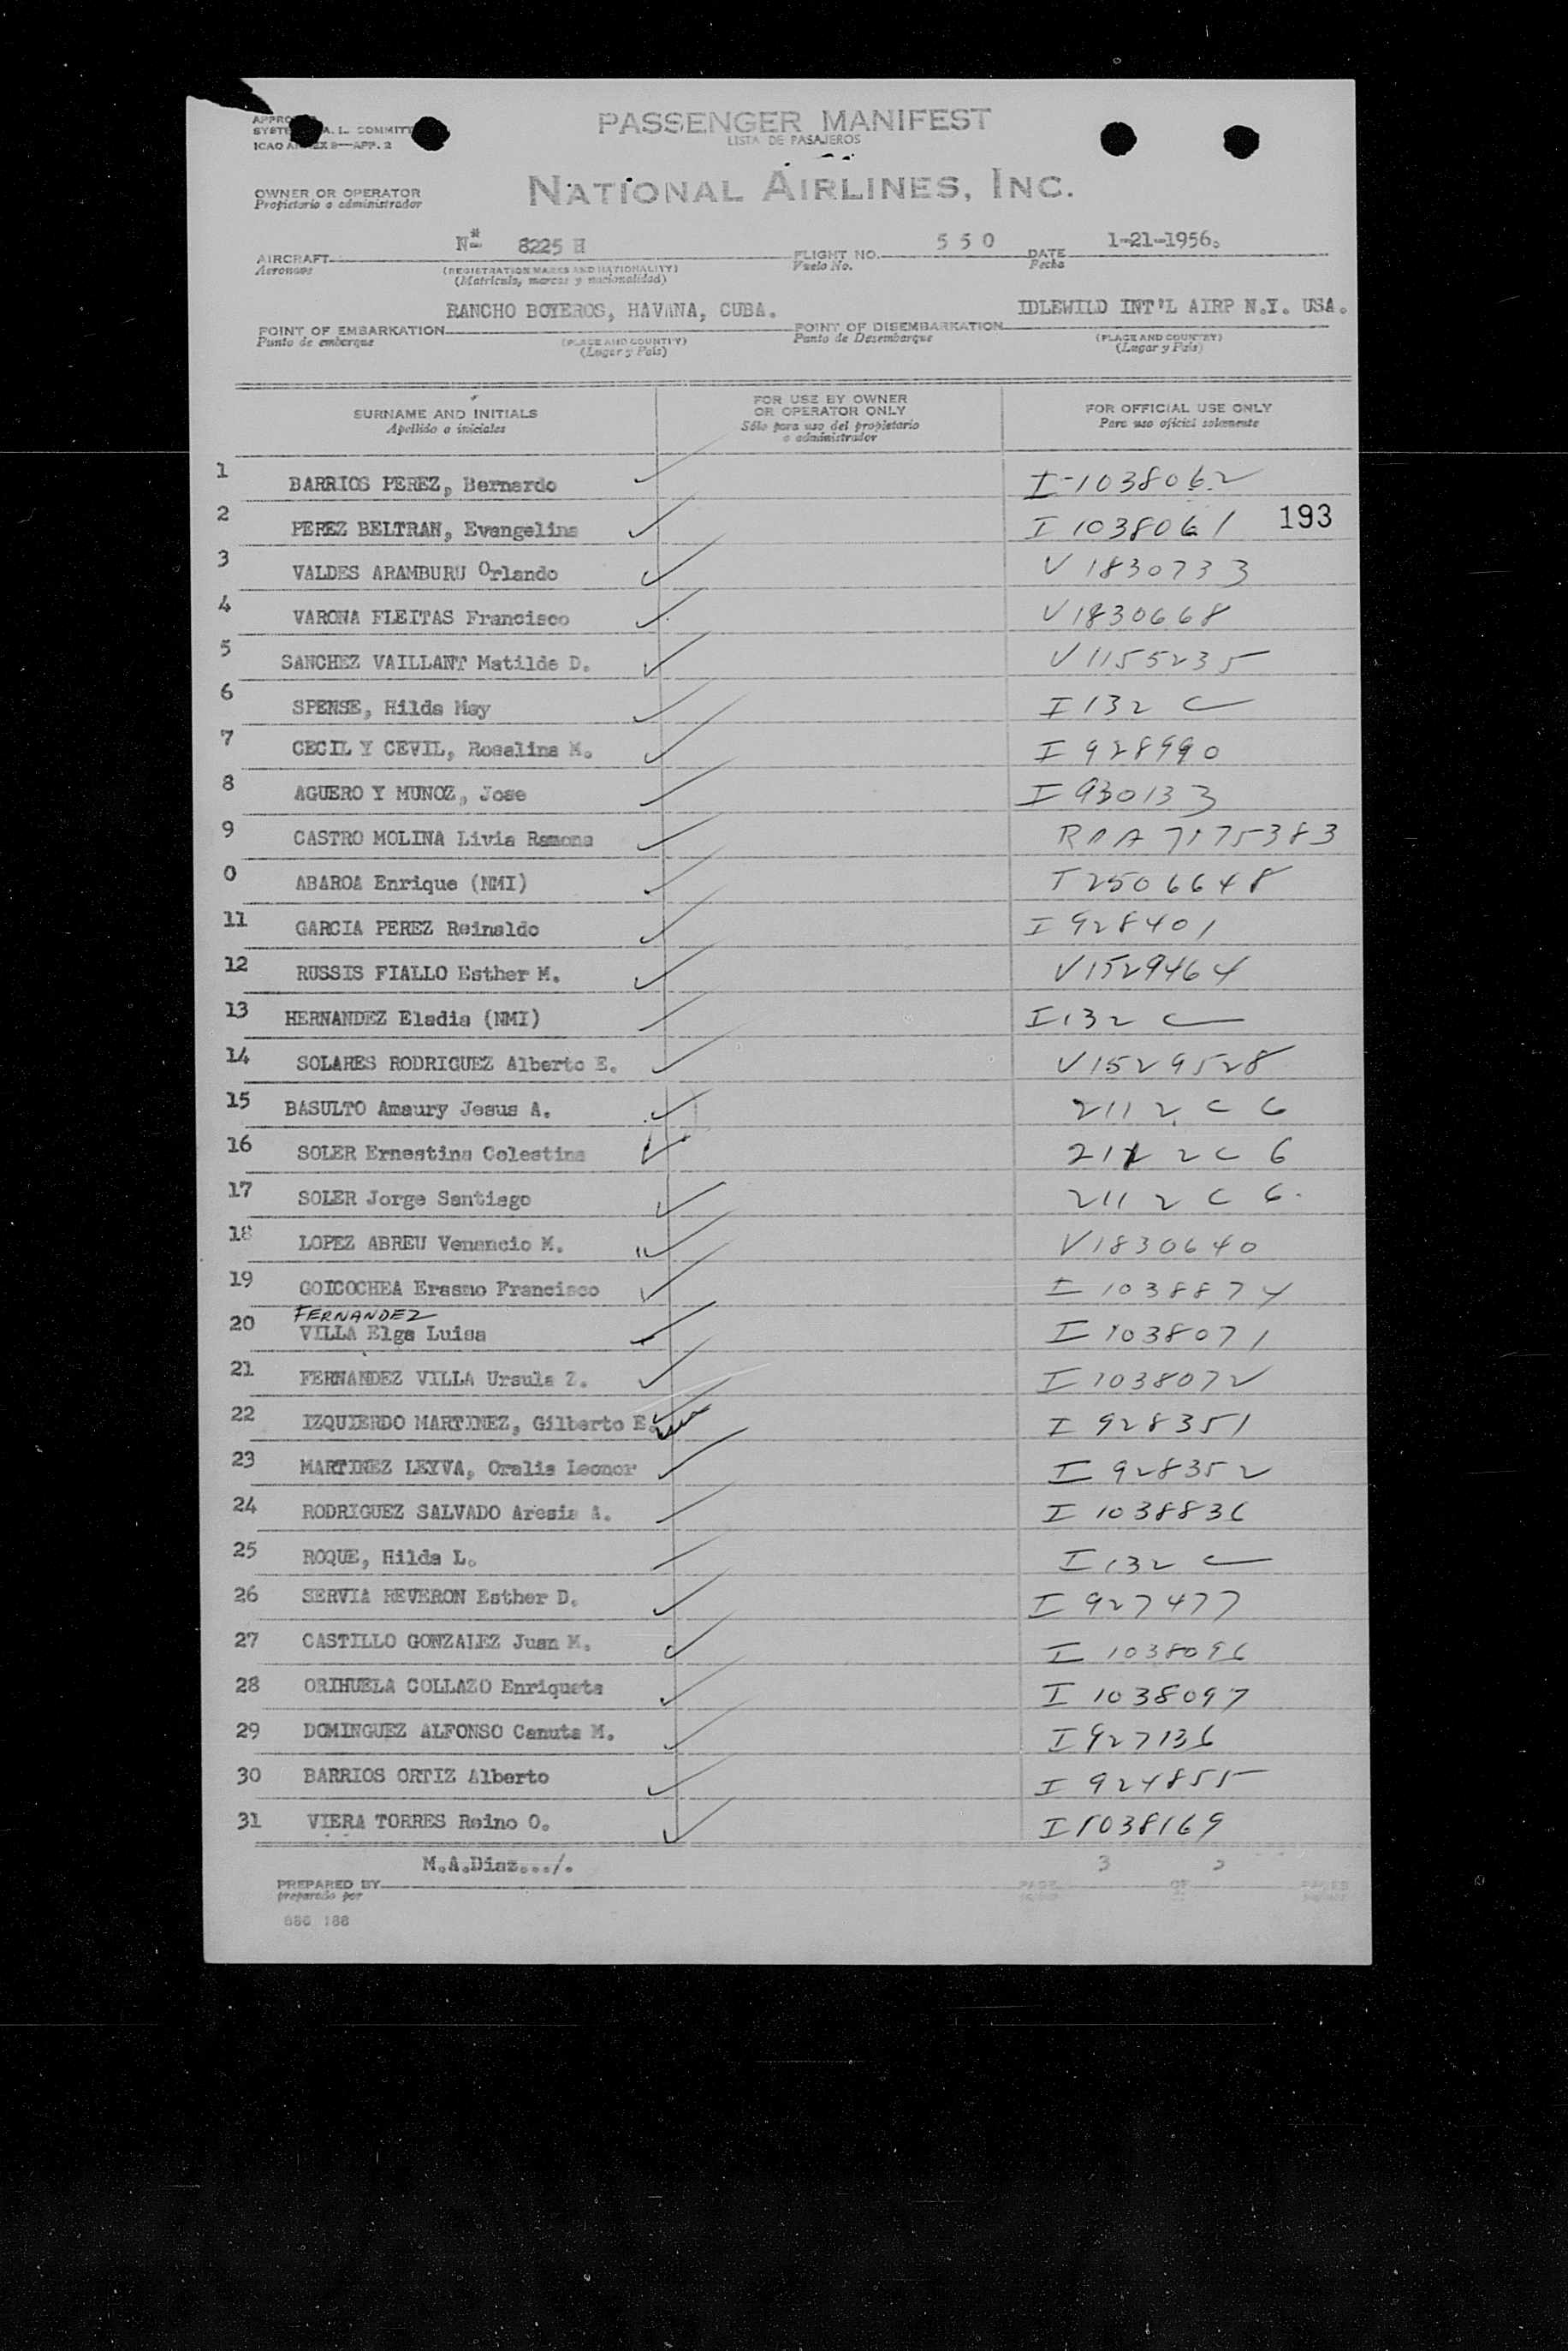 PASSENGER MANIFEST
LISTA DE PASAJEROS
ICAO ANNEX 9—APP. 2
OWNER OR OPERATOR
Propietario o administrador
NATIONAL AIRLINES, INC.
AIRCRAFT N* 8225 H FLIGHT NO. 5 5 0 DATE 1-21-1956.
Aeronave (REGISTRATION MARKS AND NATIONALITY) Vuelo No. Fecha
(Matricula, marcas y nacionalidad)
POINT OF EMBARKATION RANCHO BOYEROS, HAVANA, CUBA. POINT OF DISEMBARKATION IDLEWILD INT'L AIRP N.Y. USA.
Punto de embarque (PLACE AND COUNTRY) Punto de Desembarque (PLACE AND COUNTRY)
(Lugar y País) (Lugar y País)
SURNAME AND INITIALS FOR USE BY OWNER OR OPERATOR ONLY FOR OFFICIAL USE ONLY
Apellido o iniciales Sólo para uso del propietario o administrador Para uso oficial solamente
1 BARRIOS PEREZ, Bernardo I-1038062
2 PEREZ BELTRAN, Evangelina I 1038061 193
3 VALDES ARAMBURU Orlando V 1830733
4 VARONA FLEITAS Francisco V1830668
5 SANCHEZ VAILLANT Matilde D. V1155235
6 SPENSE, Hilda May I 132 C
7 CECIL Y CEVIL, Rosalina M. I 928990
8 AGUERO Y MUNOZ, Jose I 930133
9 CASTRO MOLINA Livia Ramona RAA 7175383
0 ABAROA Enrique (NMI) T2506648
11 GARCIA PEREZ Reinaldo I 928401
12 RUSSIS FIALLO Esther M. V1529464
13 HERNANDEZ Eladia (NMI) I 132 C
14 SOLARES RODRIGUEZ Alberto E. V1529528
15 BASULTO Amaury Jesus A. 211 2 C 6
16 SOLER Ernestina Celestina 211 2 C 6
17 SOLER Jorge Santiago 211 2 C 6.
18 LOPEZ ABREU Venancio M. V1830640
19 GOICOCHEA Erasmo Francisco I 1038874
FERNANDEZ
20 VILLA Elga Luisa I 1038071
21 FERNANDEZ VILLA Ursula Z. I 1038072
22 IZQUIERDO MARTINEZ, Gilberto E. I 928351
23 MARTINEZ LEYVA, Oralia Leonor I 928352
24 RODRIGUEZ SALVADO Aresia A. I 1038836
25 ROQUE, Hilda L. I 132 C
26 SERVIA REVERON Esther D. I 927477
27 CASTILLO GONZALEZ Juan M. I 1038096
28 ORIHUELA COLLAZO Enriqueta I 1038097
29 DOMINGUEZ ALFONSO Canuta M. I 927136
30 BARRIOS ORTIZ Alberto I 924855
31 VIERA TORRES Reino O. I 1038169
PREPARED BY M.A.Diaz.../. PAGE 3 OF PAGES
preparado por